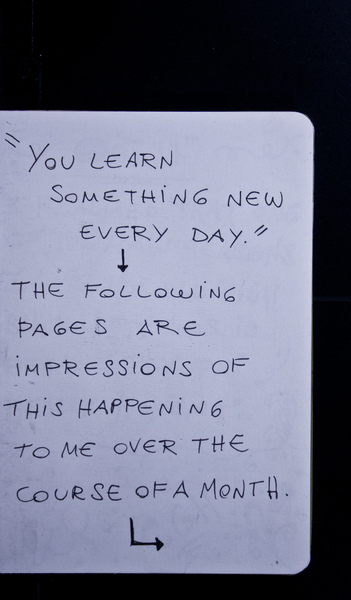 "YOU LEARN
SOMETHING NEW
EVERY DAY."
↓
THE FOLLOWING
PAGES ARE
IMPRESSIONS OF
THIS HAPPENING
TO ME OVER THE
COURSE OF A MONTH.